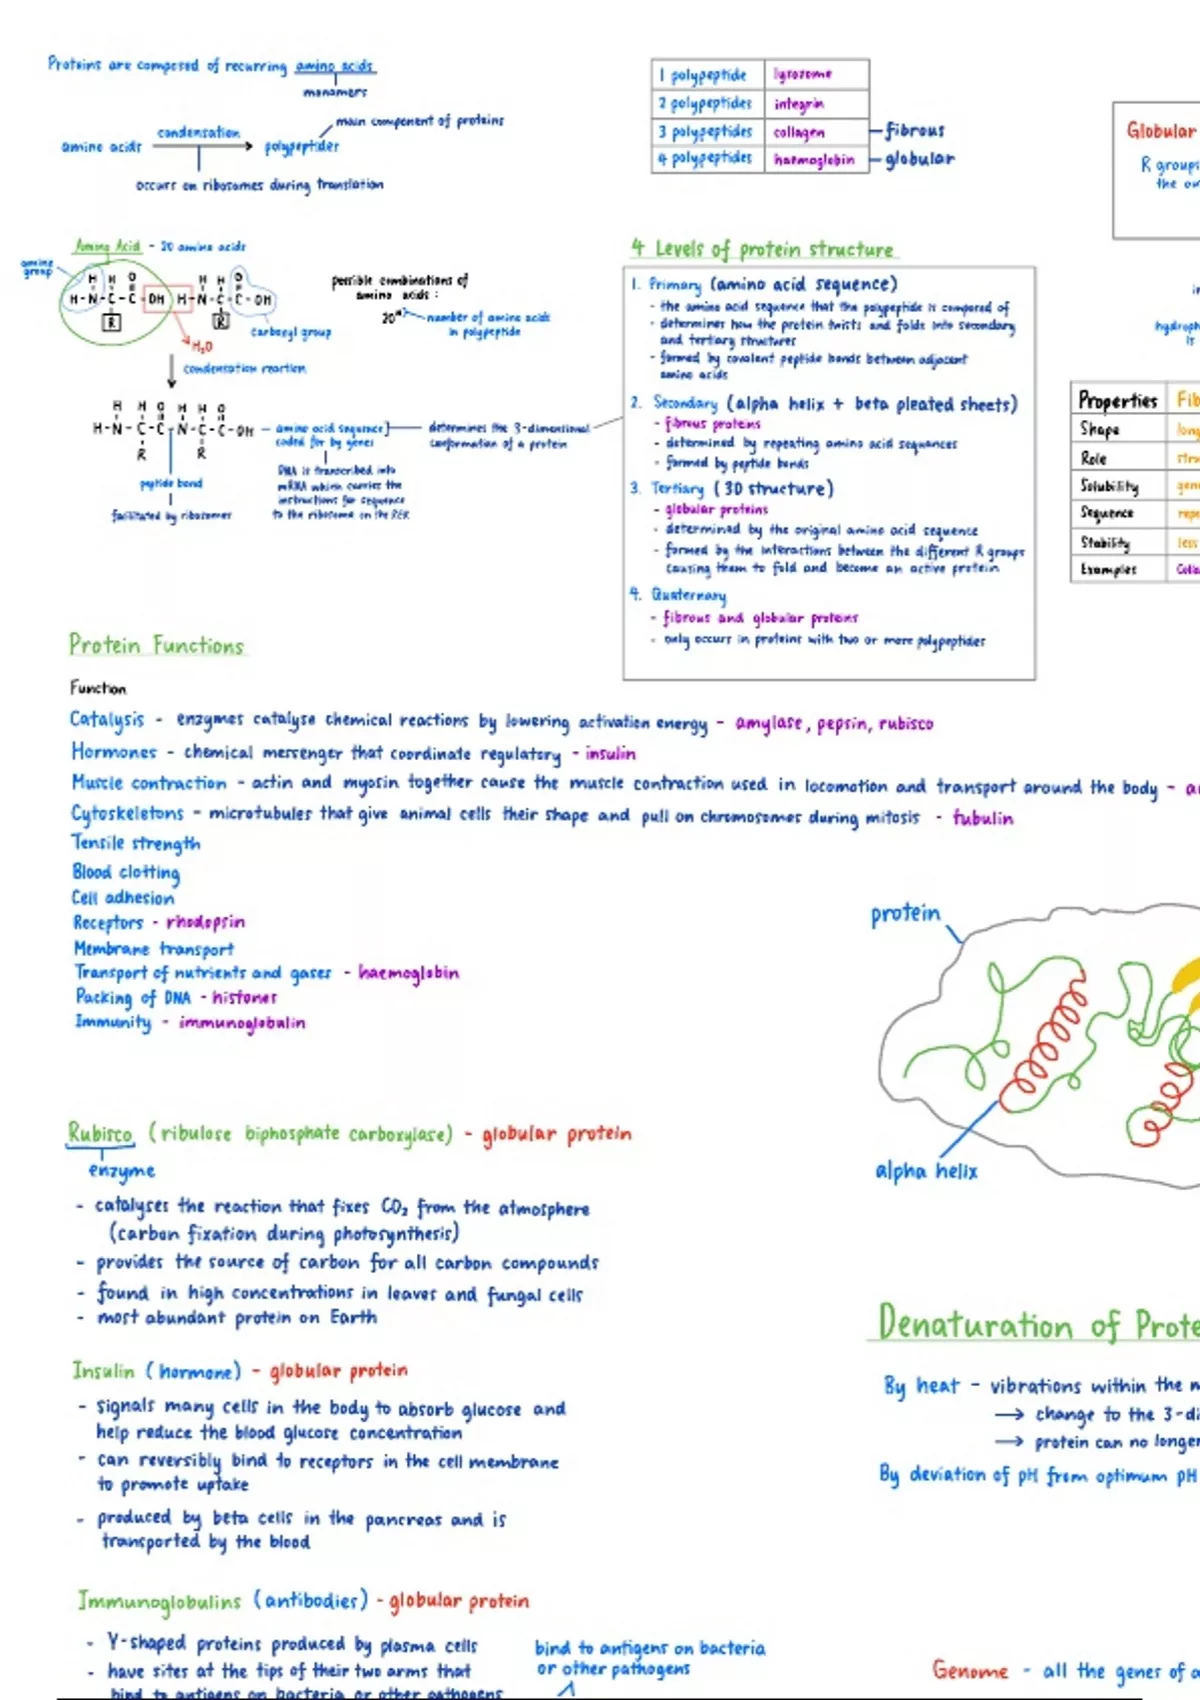 Proteins are composed of recurring amino acids
monomers
amino acids
condensation
polypeptides
main component of proteins
occurs on ribosomes during translation
Amino Acid - 20 amino acids
amine
group
H H O
H-N-C-C-OH
R
H H O
H-N-C-C-OH
R
carboxyl group
H₂O
condensation reaction
possible combinations of
amino acids :
20ⁿ
number of amino acids
in polypeptide
H H O H H O
H-N-C-C-N-C-C-OH
R R
peptide bond
facilitated by ribosomes
amino acid sequence
coded for by genes
DNA is transcribed into
mRNA which carries the
instructions for sequence
to the ribosome on the RER
determines the 3-dimensional
conformation of a protein
1 polypeptide lysozome
2 polypeptides integrin
3 polypeptides collagen
fibrous
4 polypeptides haemoglobin
globular
4 Levels of protein structure
1. Primary (amino acid sequence)
- the amino acid sequence that the polypeptide is composed of
- determines how the protein twists and folds into secondary
and tertiary structures
- formed by covalent peptide bonds between adjacent
amino acids
2. Secondary (alpha helix + beta pleated sheets)
- fibrous proteins
- determined by repeating amino acid sequences
- formed by peptide bonds
3. Tertiary (3D structure)
- globular proteins
- determined by the original amino acid sequence
- formed by the interactions between the different R groups
causing them to fold and become an active protein
4. Quaternary
- fibrous and globular proteins
- only occurs in proteins with two or more polypeptides
Globular
R groups
the ou
in
hydroph
is
Properties Fib
Shape long
Role stru
Solubility gene
Sequence repe
Stability less
Examples Colla
Protein Functions
Function
Catalysis - enzymes catalyse chemical reactions by lowering activation energy - amylase, pepsin, rubisco
Hormones - chemical messenger that coordinate regulatory - insulin
Muscle contraction - actin and myosin together cause the muscle contraction used in locomotion and transport around the body - a
Cytoskeletons - microtubules that give animal cells their shape and pull on chromosomes during mitosis - tubulin
Tensile strength
Blood clotting
Cell adhesion
Receptors - rhodopsin
Membrane transport
Transport of nutrients and gases - haemoglobin
Packing of DNA - histones
Immunity - immunoglobulin
protein
alpha helix
Rubisco (ribulose biphosphate carboxylase) - globular protein
enzyme
- catalyses the reaction that fixes CO₂ from the atmosphere
(carbon fixation during photosynthesis)
- provides the source of carbon for all carbon compounds
- found in high concentrations in leaves and fungal cells
- most abundant protein on Earth
Insulin (hormone) - globular protein
- signals many cells in the body to absorb glucose and
help reduce the blood glucose concentration
- can reversibly bind to receptors in the cell membrane
to promote uptake
- produced by beta cells in the pancreas and is
transported by the blood
Immunoglobulins (antibodies) - globular protein
- Y-shaped proteins produced by plasma cells
- have sites at the tips of their two arms that
bind to antigens on bacteria or other pathogens
bind to antigens on bacteria
or other pathogens
Denaturation of Prote
By heat - vibrations within the m
→ change to the 3-di
→ protein can no longer
By deviation of pH from optimum pH
Genome - all the genes of a